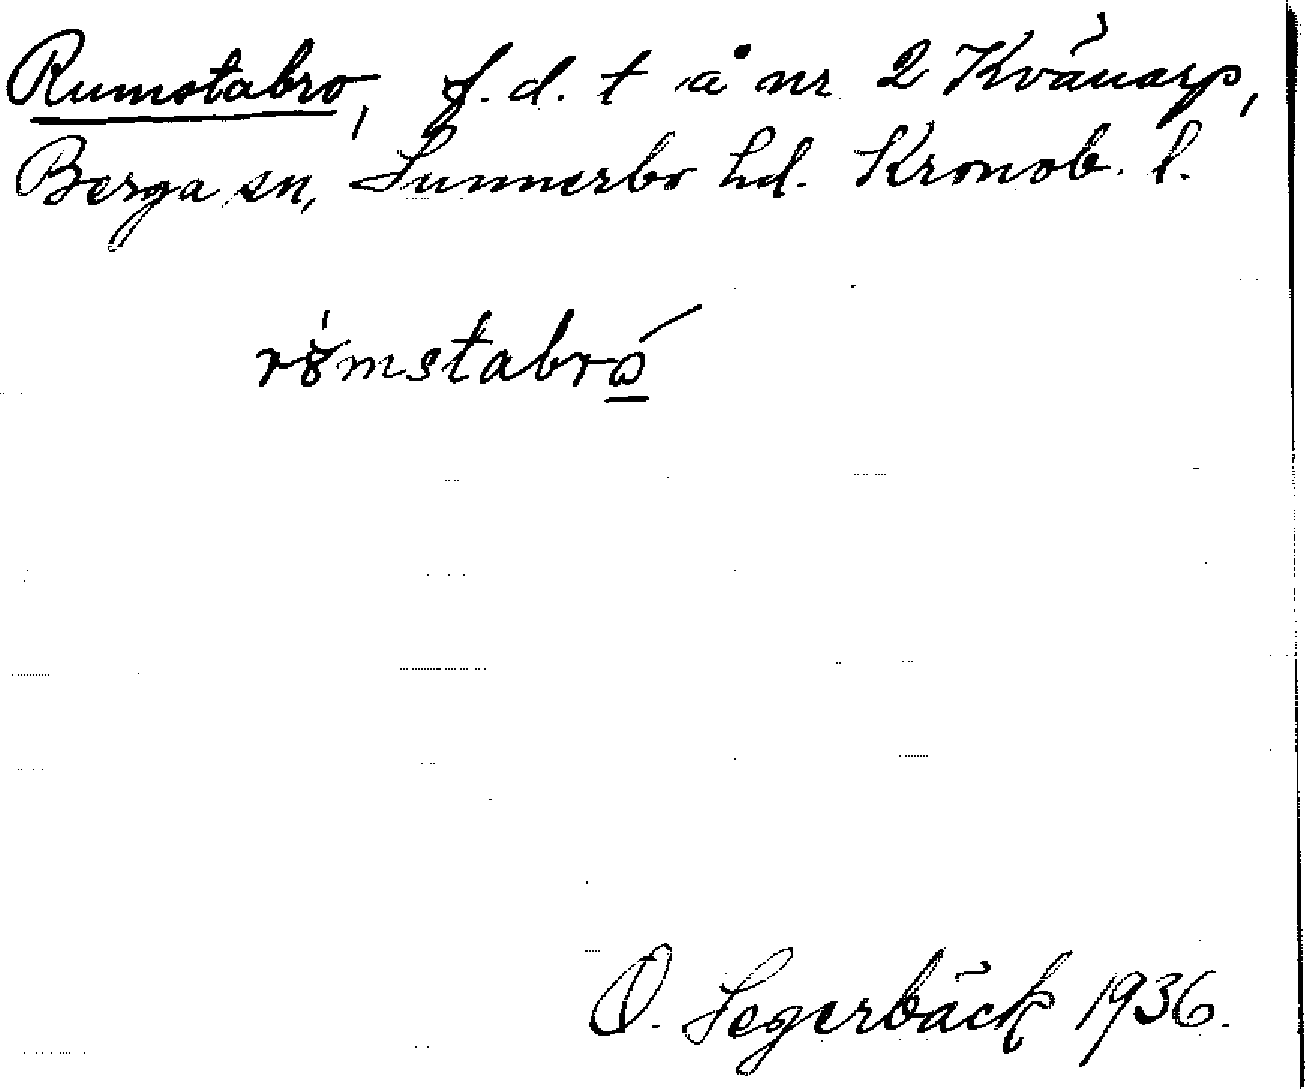 Rumstabro, f.d. t å nr 2 Kvänarp,
Berga sn, Sunnerbo hd. Kronob. l.
rømstabró
O. Segerbäck 1936.